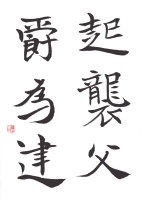 起襲父
爵為建